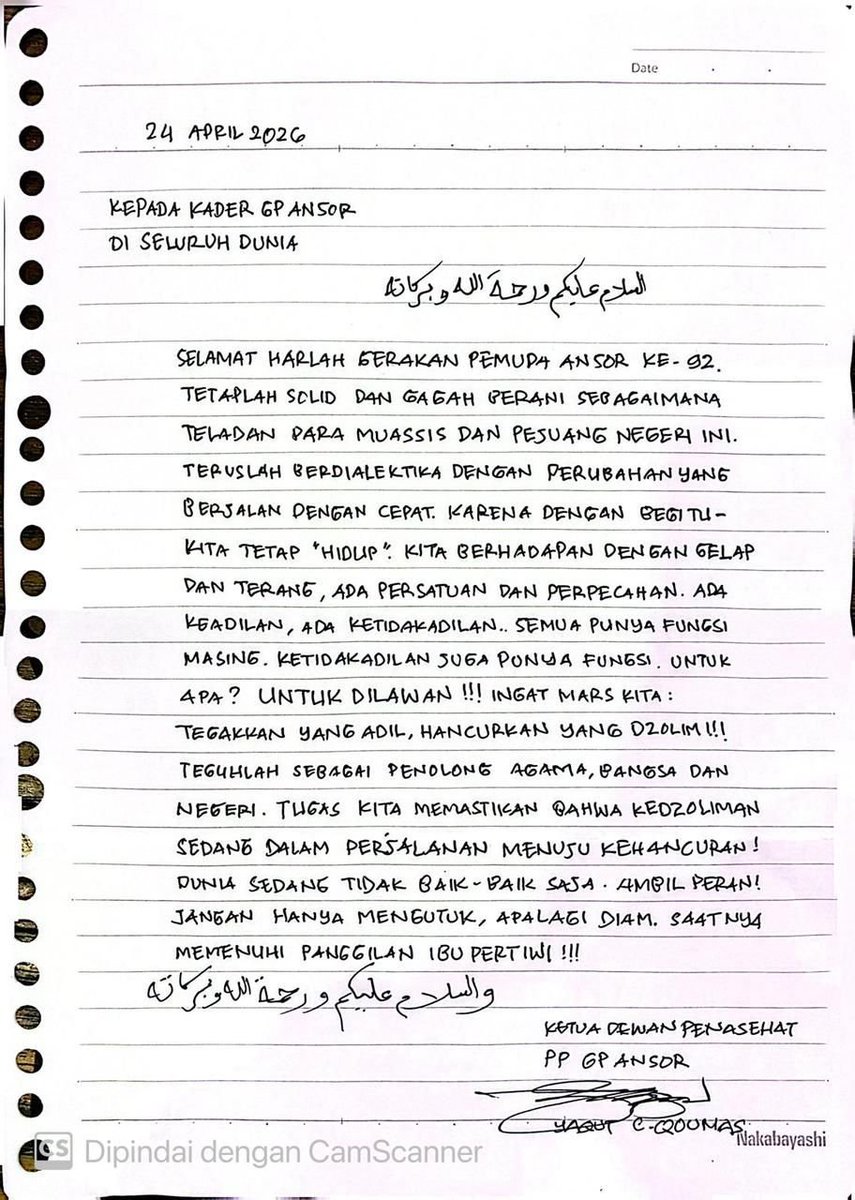 Date . .
24 APRIL 2026
KEPADA KADER GP ANSOR
DI SELURUH DUNIA
السلام عليكم ورحمة الله وبركاته
SELAMAT HARLAH GERAKAN PEMUDA ANSOR KE-92.
TETAPLAH SOLID DAN GAGAH BERANI SEBAGAIMANA
TELADAN PARA MUASSIS DAN PEJUANG NEGERI INI.
TERUSLAH BERDIALEKTIKA DENGAN PERUBAHAN YANG
BERJALAN DENGAN CEPAT. KARENA DENGAN BEGITU-
KITA TETAP "HIDUP". KITA BERHADAPAN DENGAN GELAP
DAN TERANG, ADA PERSATUAN DAN PERPECAHAN. ADA
KEADILAN, ADA KETIDAKADILAN.. SEMUA PUNYA FUNGSI
MASING. KETIDAKADILAN JUGA PUNYA FUNGSI. UNTUK
APA? UNTUK DILAWAN!!! INGAT MARS KITA:
TEGAKKAN YANG ADIL, HANCURKAN YANG DZOLIM!!!
TEGUHLAH SEBAGAI PENOLONG AGAMA, BANGSA DAN
NEGERI. TUGAS KITA MEMASTIKAN BAHWA KEDZOLIMAN
SEDANG DALAM PERJALANAN MENUJU KEHANCURAN!
DUNIA SEDANG TIDAK BAIK-BAIK SAJA. AMBIL PERAN!
JANGAN HANYA MENGUTUK, APALAGI DIAM. SAATNYA
MEMENUHI PANGGILAN IBU PERTIWI!!!
والسلام عليكم ورحمة الله وبركاته
KETUA DEWAN PENASEHAT
PP GP ANSOR
YAQUT C-QOUMAS
Nakabayashi
CS Dipindai dengan CamScanner